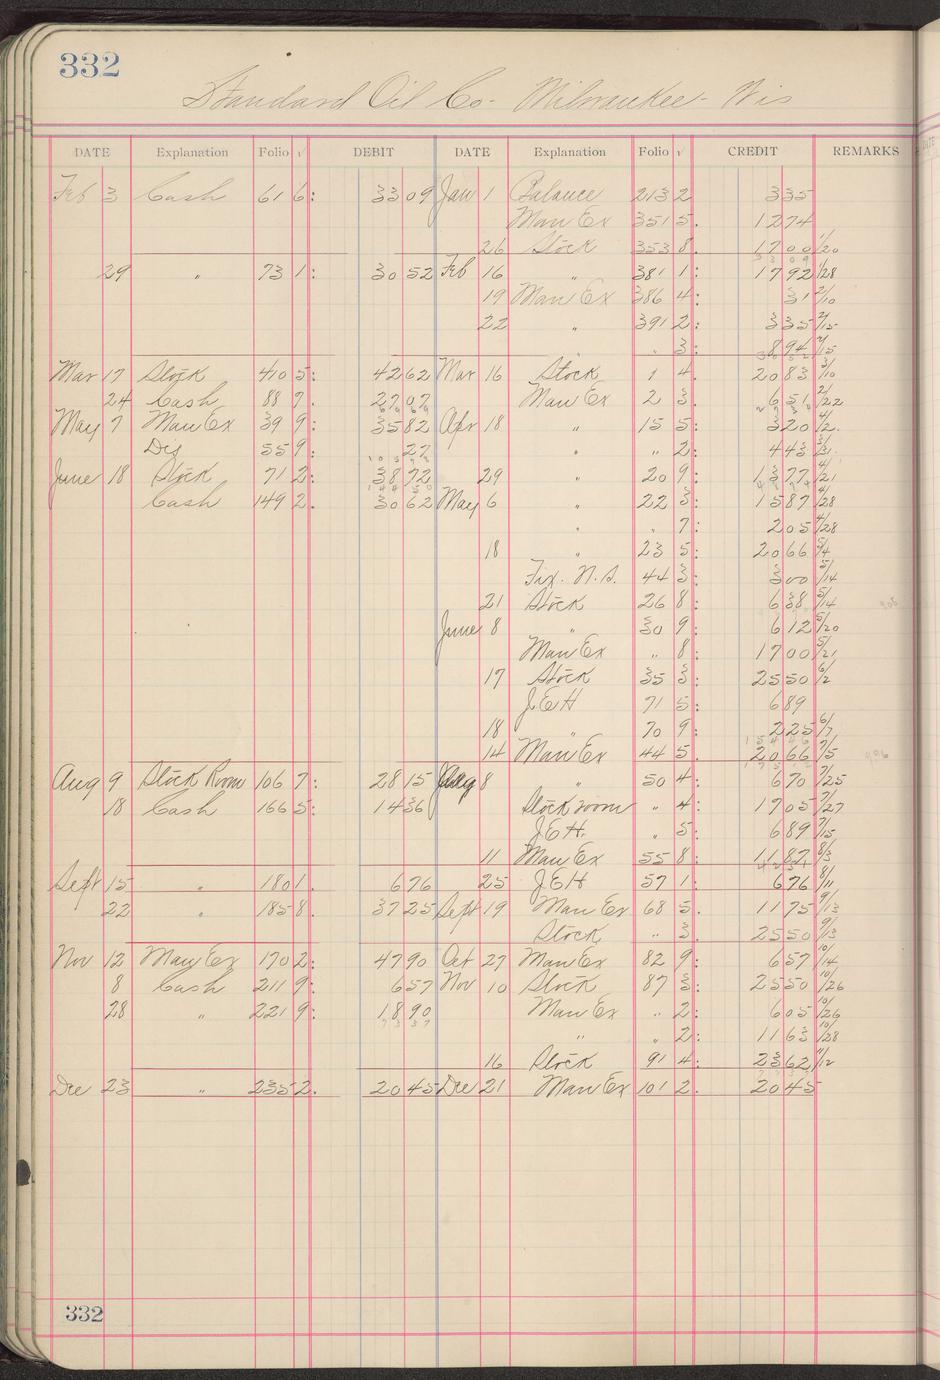 332
Standard Oil Co- Milwaukee- Wis
DATE Explanation Folio √ DEBIT DATE Explanation Folio √ CREDIT REMARKS
Feb 3 Cash 61 6: 33 09 Jan 1 Balance 213 2 3 35
Man Ex 351 5. 12 74
26 Stock 353 8. 17 00 1/20
33 09
29 " 73 1: 30 52 Feb 16 " 381 1: 17 92 1/28
19 Man Ex 386 4: 31 2/10
22 " 391 2: 3 35 2/15
" 3: 8 94 2/15
30 52
Mar 17 Stock 410 5: 42 62 Mar 16 Stock 1 4. 20 83 3/10
24 Cash 88 7. 27 07 Man Ex 2 3. 6 51 2/22
May 7 Man Ex 39 9: 35 82 Apr 18 " 15 5: 3 20 4/2
Dis 55 9: 27 " " 2: 4 43 3/31
June 18 Stock 71 2: 38 72 29 " 20 9: 13 77 4/21
Cash 149 2. 30 62 May 6 " 22 3: 15 87 4/28
" " 7: 2 05 4/28
18 " 23 5: 20 66 5/4
Fix. N.S. 44 3: 3 00 5/14
21 Stock 26 8: 6 38 5/14
June 8 " 30 9: 6 12 5/20
Man Ex " 8: 17 00 5/21
17 Stock 35 3: 25 50 6/2
J.E.H 71 5: 6 89
18 " 70 9: 2 25 6/7
14 Man Ex 44 5. 20 66 7/5
Aug 9 Stock Room 106 7: 28 15 Aug 8 " 50 4: 6 70 7/25
18 Cash 166 5: 14 36 Stock room " 4: 17 05 7/27
J.E.H. " 5: 6 89 7/15
11 Man Ex 55 8: 11 87 8/3
Sept 15 " 180 1. 6 76 25 J.E.H 57 1: 6 76 8/11
22 " 185 8. 37 25 Sept 19 Man Ex 68 5. 11 75 9/13
Stock " 3. 25 50 9/13
Nov 12 Man Ex 170 2: 47 90 Oct 27 Man Ex 82 9: 6 57 10/14
8 Cash 211 9: 6 57 Nov 10 Stock 87 3: 25 50 10/26
28 " 221 9: 18 90 Man Ex " 2: 6 05 10/26
73 37
" " 2: 11 63 10/28
16 Stock 91 4: 23 62 11/12
Dec 23 " 235 2. 20 45 Dec 21 Man Ex 101 2. 20 45
332